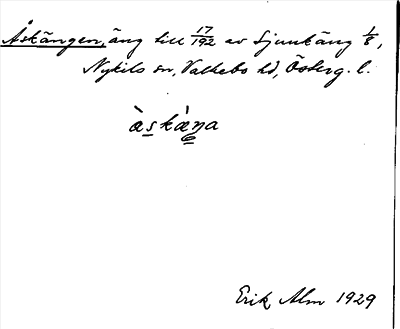 Åskängen, äng till 17/192 av Ljunkäng 1/8,
Nykils sn, Valkebo hd, Österg. l.
æ̀skæ̀ŋa
Erik Alm 1929